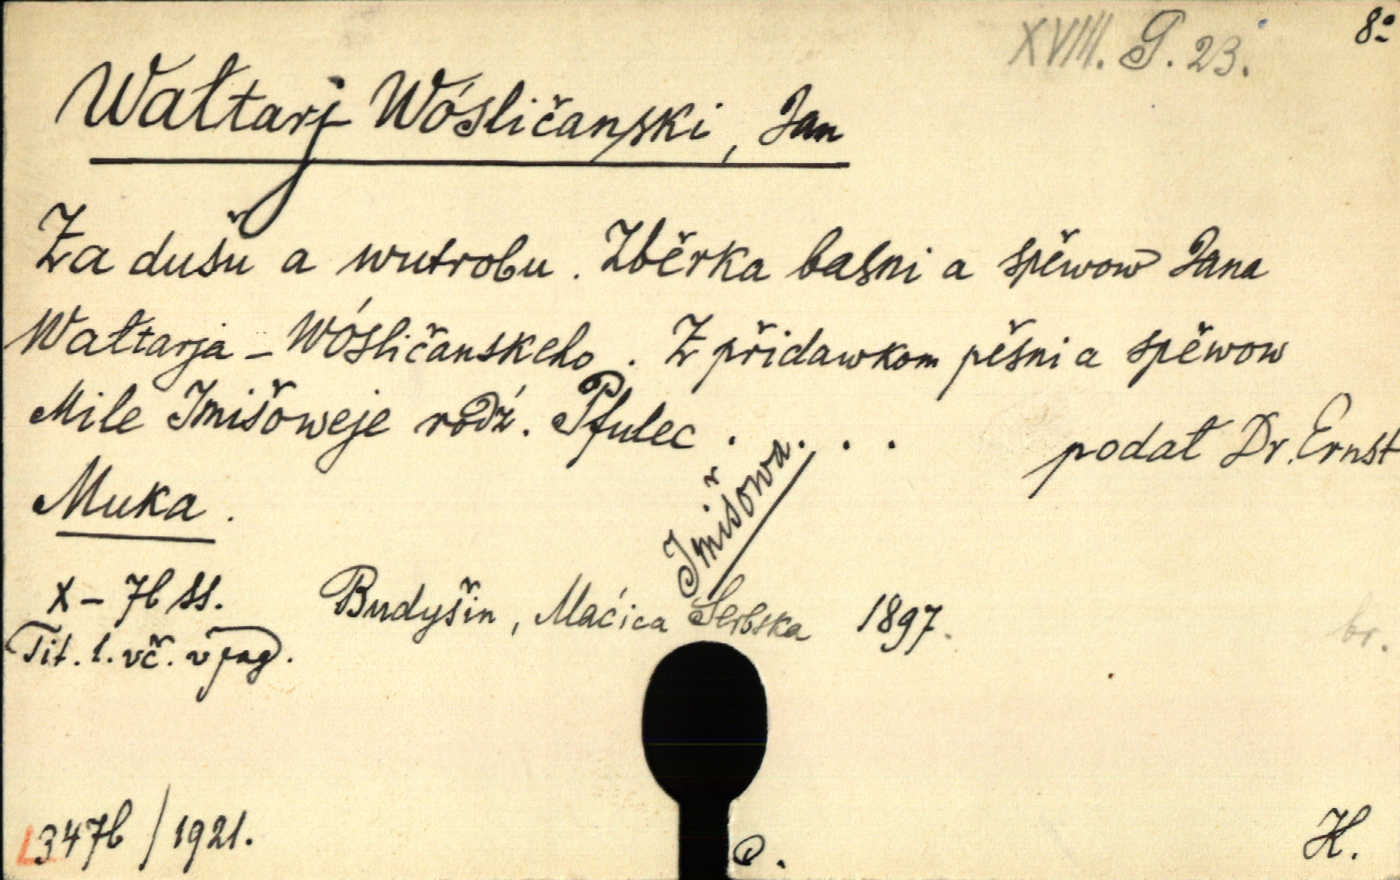 XVIII. G. 23. 8º
Wałtarj Wósličanski, Jan
Za dušu a wutrobu. Zběrka basni a spěwow Jana
Wałtarja - Wósličanskeho. Z přidawkom pěsni a spěwow
Mile Imišoweje rodź. Pfulec . . . . podał Dr. Ernst
Muka.
Imišowa
X - 76 ss. Budyšin, Maćica Serbska 1897.
br.
Tit. l. vč. v pag.
L3476/1921.
H.